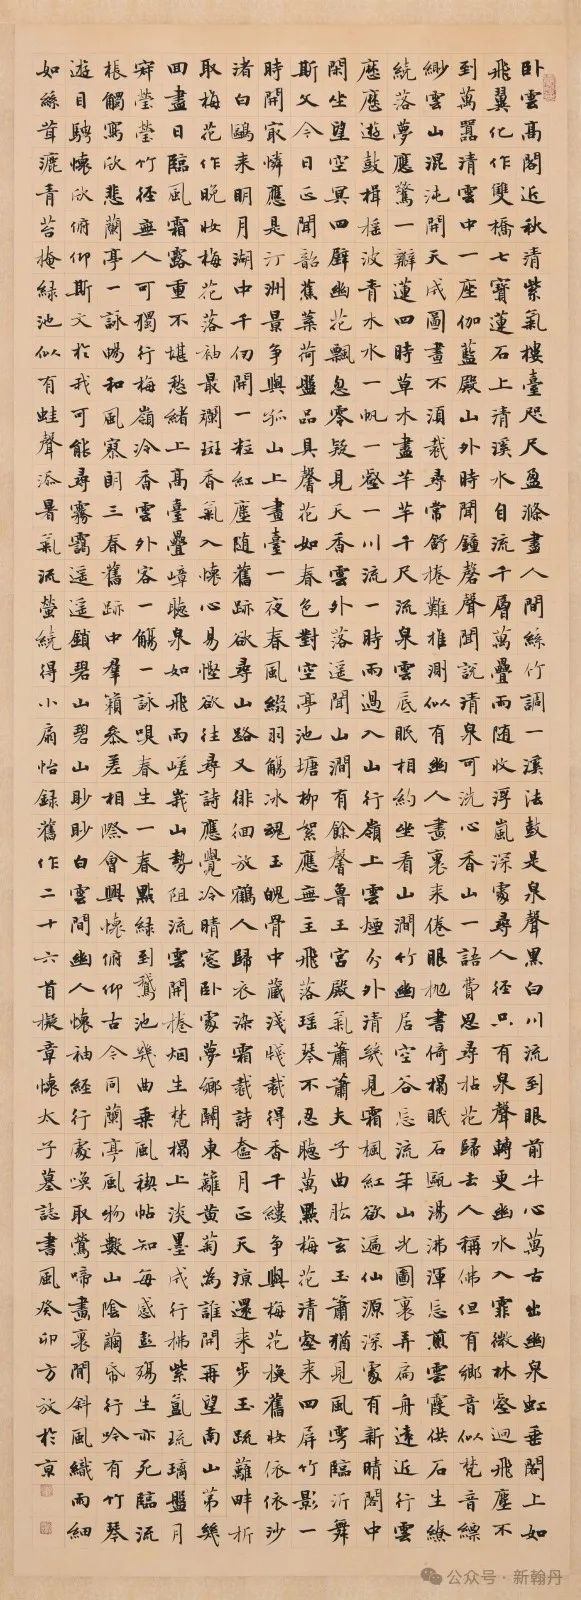 卧雲高閣近秋清紫氣樓臺咫尺盈滌盡人間絲竹調一溪法鼓是泉聲黑白川流到眼前牛心萬古出幽泉虹垂閣上如
飛翼化作雙橋七寶蓮石上清溪水自流千層萬疊雨随收浮嵐深處尋人徑只有泉聲轉更幽水入霏微林壑迴飛塵不
到萬囂清雲中一座伽藍殿山外時聞鐘磬聲聞說清泉可洗心香山一語費思尋拈花歸去人稱佛但有鄉音似梵音縹
緲雲山混沌開天成圖畫不須裁尋常舒捲難推測似有幽人畫裏来倦眼抛書倚榻眠石甌湯沸渾忘煎雲霞供石生繚
繞落夢應驚一瓣蓮四時草木盡芊芊千尺流泉雲底眠相約坐看山澗竹幽居空谷忘流年山光圖裏弄扁舟遠近行雲
應應遊鼓楫摇波青水水一帆一壑一川流一時雨過入山行嶺上雲煙分外清幾見霜楓紅欲遍仙源深處有新晴閣中
閑坐望空冥四壁幽花飄忽零疑見天香雲外落遥聞山澗有餘聲魯王宫殿氣蕭蕭夫子曲肱玄玉簫猶見風雩臨沂舞
斯文今日正聞韶蕉葉荷盤品具馨花如春色對空亭池塘柳絮應無主飛落瑶琴不忍聽萬點梅花清壑来四屏竹影一
時開最憐應是汀洲景争與孤山上畫臺一夜春風綴羽觴冰魂玉魄骨中藏淺淺裁得香千縷争與梅花换舊妝依依沙
渚白鷗来明月湖中千仞開一粒紅塵随舊跡欲尋山路又徘徊放鶴人歸衣染霜裁詩奩月正天涼還来步玉疏籬畔折
取梅花作晚妝梅花落袖最斕斑香氣入懷心易慳欲往尋詩應覺冷晴窓卧處夢鄉關東籬黄菊為誰開再望南山第幾
回盡日臨風霜露重不堪愁緒上高臺疊嶂聽泉如飛雨嵯峨山勢阻流雲開捲烟生梵榻上淡墨成行拂紫氤琉璃盤月
瑩瑩竹徑無人可獨行梅嶺冷香雲外客一觴一詠唄春生一春點緑到鵞池幾曲乗風禊帖知每感彭殤生亦死臨流
棖觸寫欣悲蘭亭一詠暢和風寒朗三春舊跡中羣籟叅差相際會興懷俯仰古今同蘭亭風物數山陰繭帋行吟有竹琴
遊目騁懷欣俯仰斯文於我可能尋霧靄遥遥鎖碧山碧山眇眇白雲間幽人懷袖經行處喚取鶯啼畫裏間斜風織雨細
如絲茸漉青苔掩緑池似有蛙聲添暑氣流螢繞得小扇怡録舊作二十六首擬章懷太子墓誌書風癸卯方放於京
公众号·新翰丹